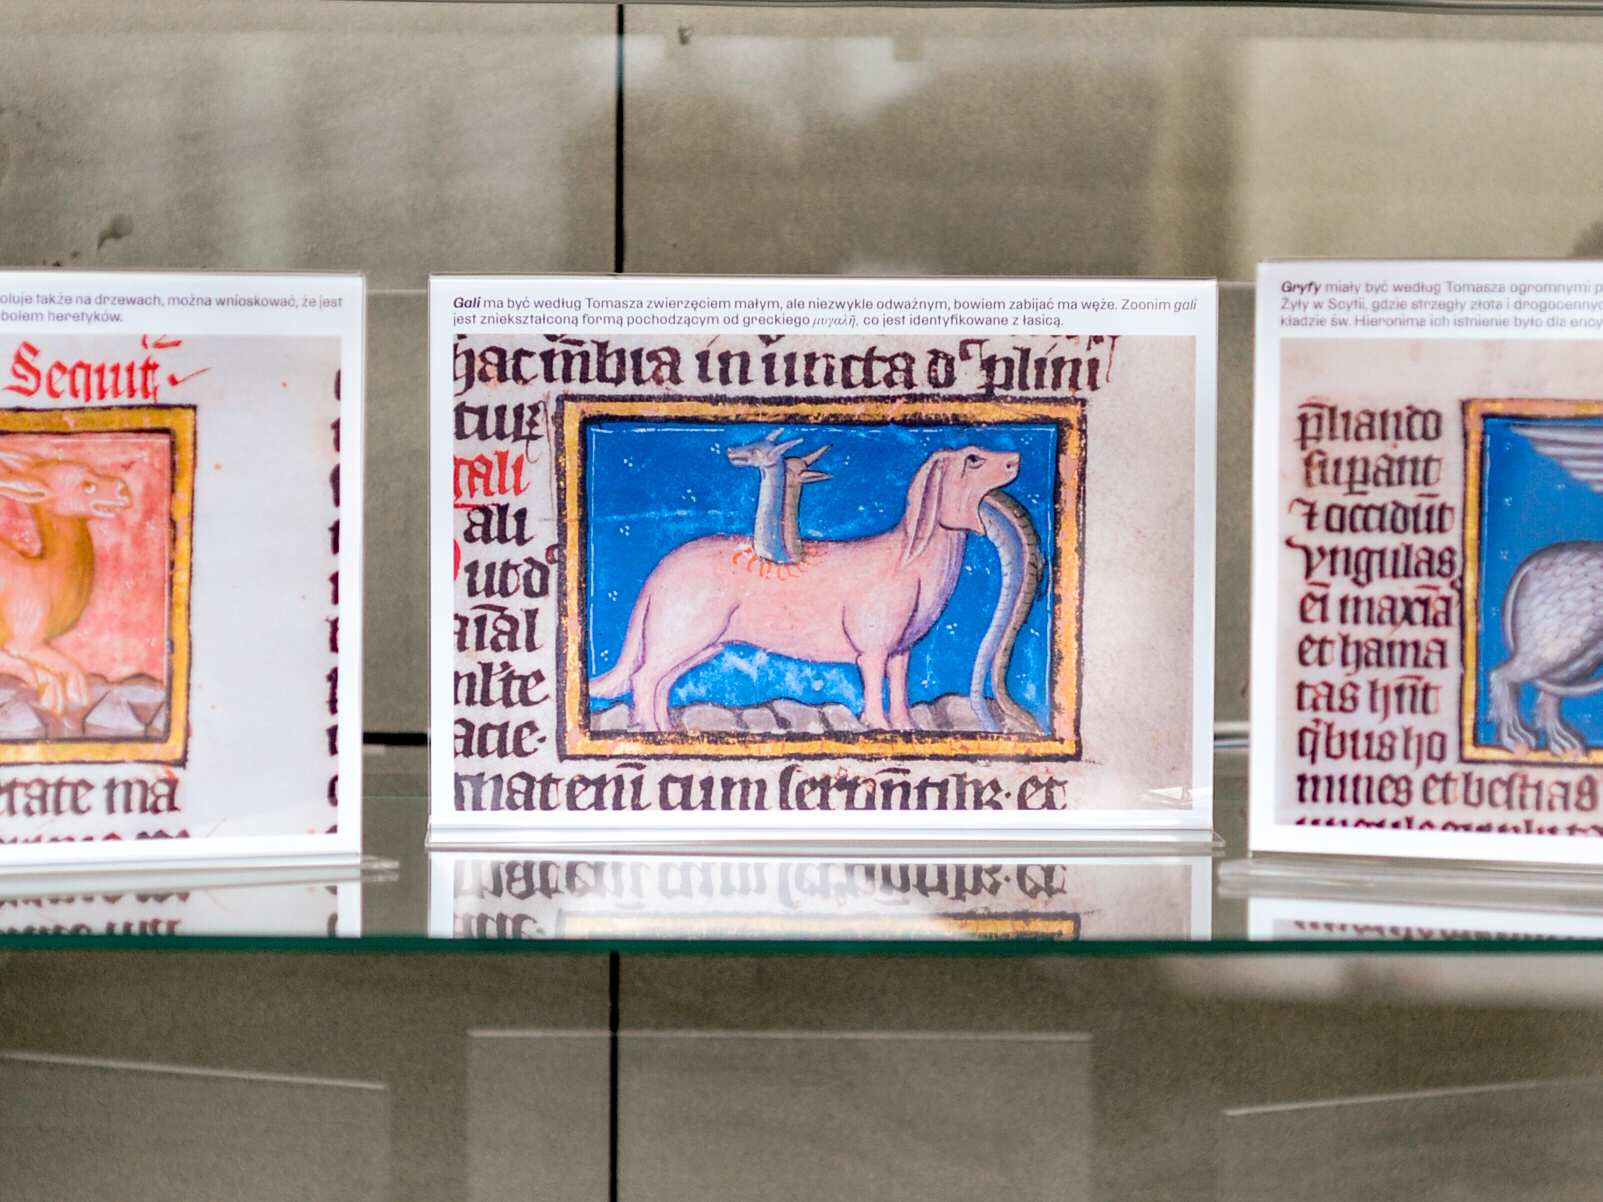 oluje także na drzewach, można wnioskować, że jest
bolem heretyków.
Sequit
etate ma
Gali ma być według Tomasza zwierzęciem małym, ale niezwykle odważnym, bowiem zabijać ma węże. Zoonim gali
jest zniekształconą formą pochodzącym od greckiego μυγαλῆ, co jest identyfikowane z łasicą.
hac mbia in iuncta d plini
tur
gali
ali
utd
aial
mlte
acie·
mateni cum serpentibz· et
Gryfy miały być według Tomasza ogromnymi p
Żyły w Scytii, gdzie strzegły złota i drogocenny
kładzie św. Hieronima ich istnienie było dla ency
pliando
supant
⁊ occidūt
yngulas
ei maxīa
et hama
tas hn̄t
qbus ho
mines et bestias